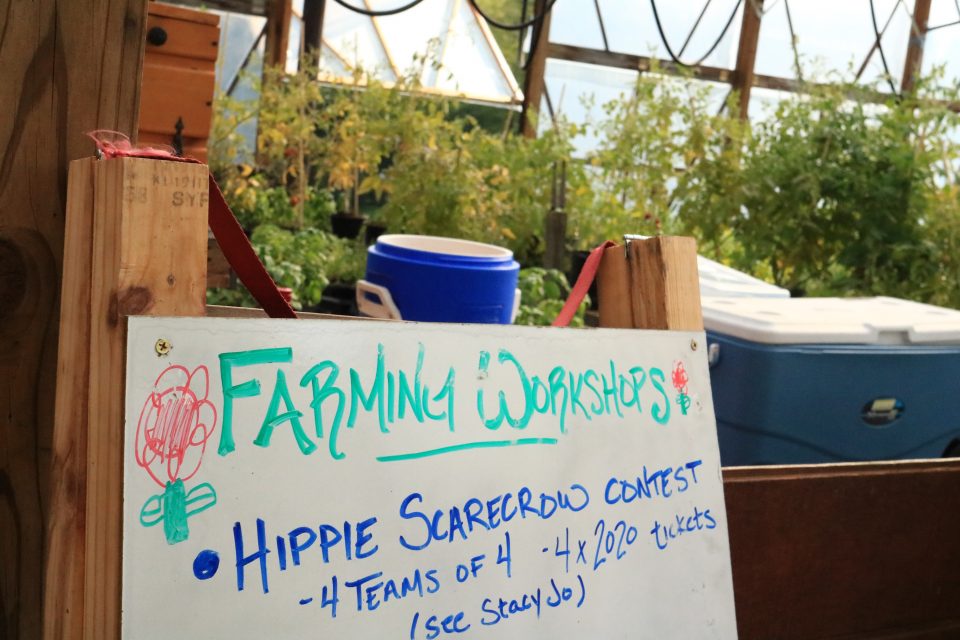 FARMING WORKSHOPS
• HIPPIE SCARECROW CONTEST
- 4 TEAMS OF 4 - 4 x 2020 tickets
(see StacyJo)